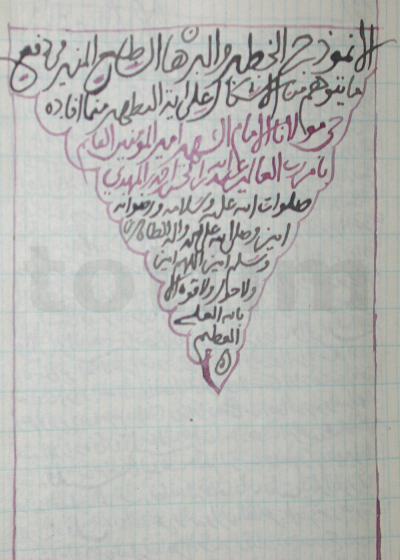 الانموذج الخطير والبرهان الطالع المنير في دفع
ما يتوهم من الاشكال على اية التطهير مما افاده
حي مولانا الامام الشهيد امير المؤمنين القايم
بامر رب العالمين عبدالله بن الحسن احمد المهدي
صلوات الله عليه وسلامه ورضوانه
امين وصلى الله على محمد واله الطاهرين
وسلم امين اللهم امين
ولا حول ولا قوة الا
بالله العلي
العظيم